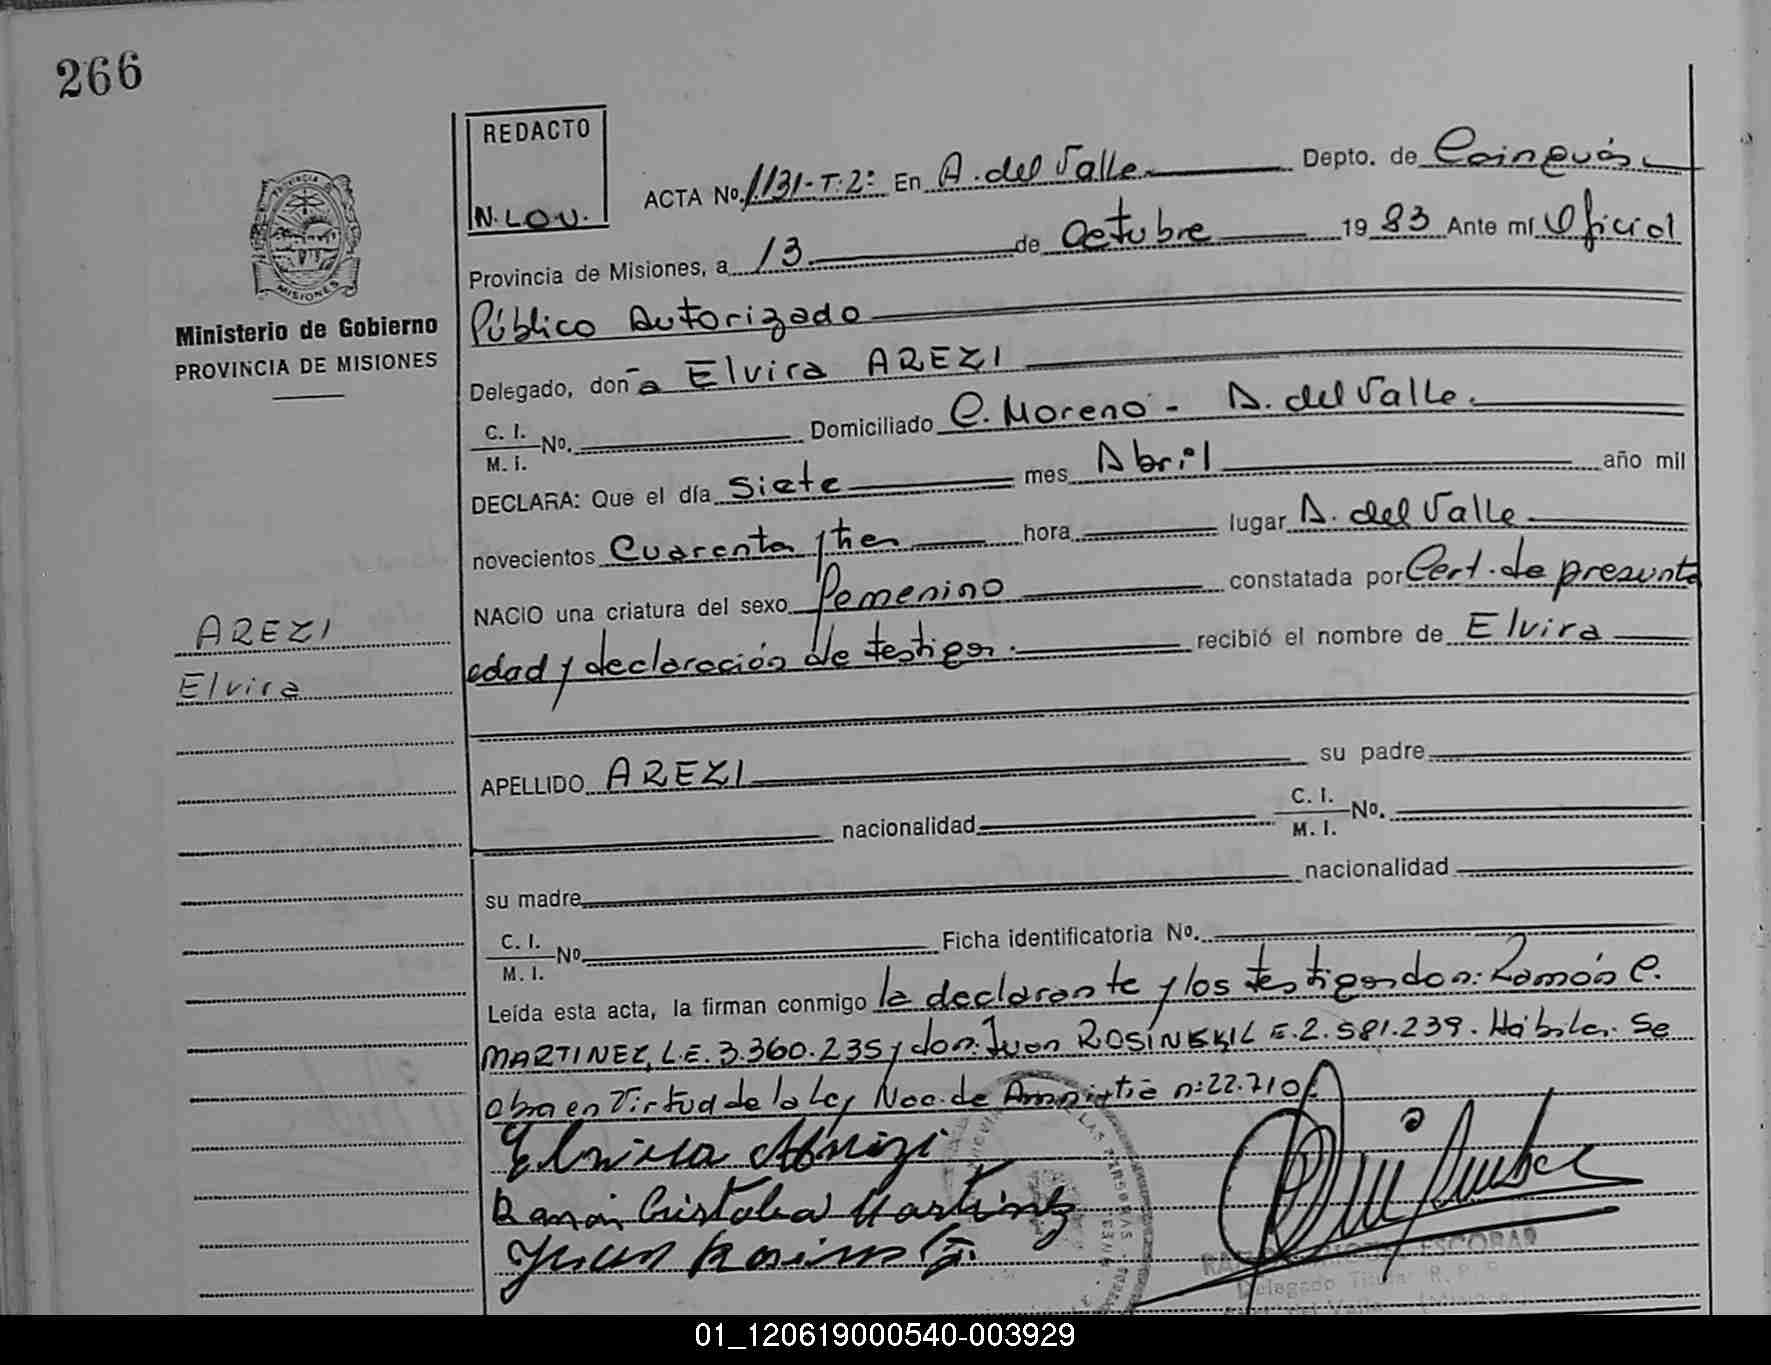 266
REDACTO
N.LOU.
ACTA No. 1131-T:2: En A. del Valle Depto. de Cainguás
Provincia de Misiones, a 13 de Octubre 1983 Ante mí Oficial
Público Autorizado
Delegado, don a Elvira AREZI
C. I. M. I. No. Domiciliado C. Moreno - A. del Valle.
DECLARA: Que el día Siete mes Abril año mil
novecientos Cuarenta y tres hora lugar A. del Valle
NACIO una criatura del sexo Femenino constatada por Cert. de presunta
edad y declaración de testigos. recibió el nombre de Elvira
APELLIDO AREZI su padre
nacionalidad C. I. M. I. No.
su madre nacionalidad
C. I. M. I. No Ficha identificatoria No.
Leída esta acta, la firman conmigo la declarante y los testigos don: Ramón C.
MARTINEZ, L.E. 3.360.235 y don: Juan ROSINSKI L E. 2.581.239. Hábiles. Se
obra en Virtud de la Ley Nac. de Amnistia n: 22.710
Ramón Cristobal Martinez
Juan
ESCOBAR
Delegado Titular R. P. P.
PROVINCIA
MISIONES
Ministerio de Gobierno
PROVINCIA DE MISIONES
AREZI
Elvira
LAS PERSONAS
01_120619000540-003929